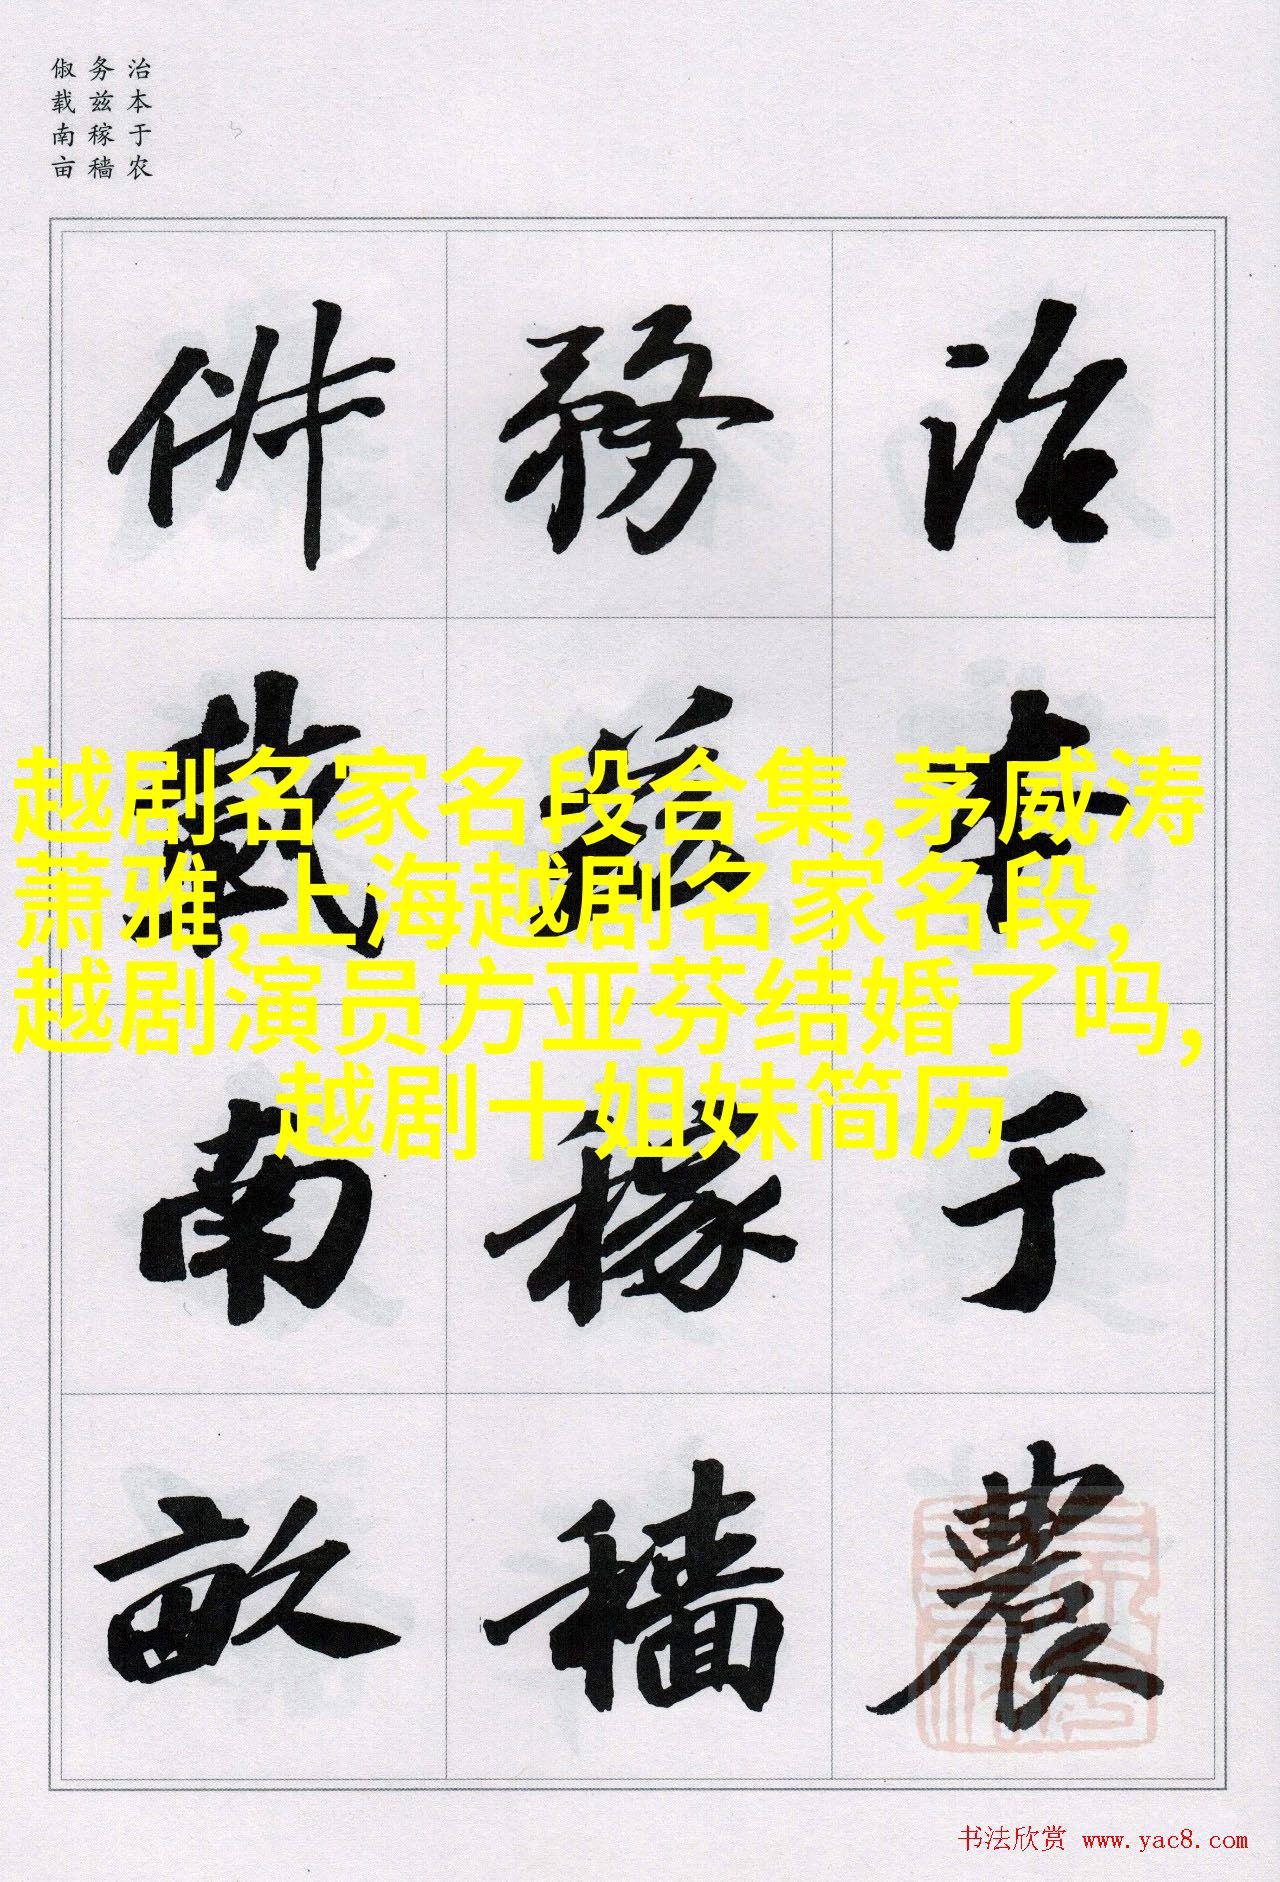 治本于农
务兹稼穑
俶载南亩
治本于農
務兹稼穑
俶載南畝
越剧名家名段合集,茅威涛
萧雅,上海越剧名家名段,
越剧演员方亚芬结婚了吗,
越剧十姐妹简历
书法欣赏 www.yac8.com